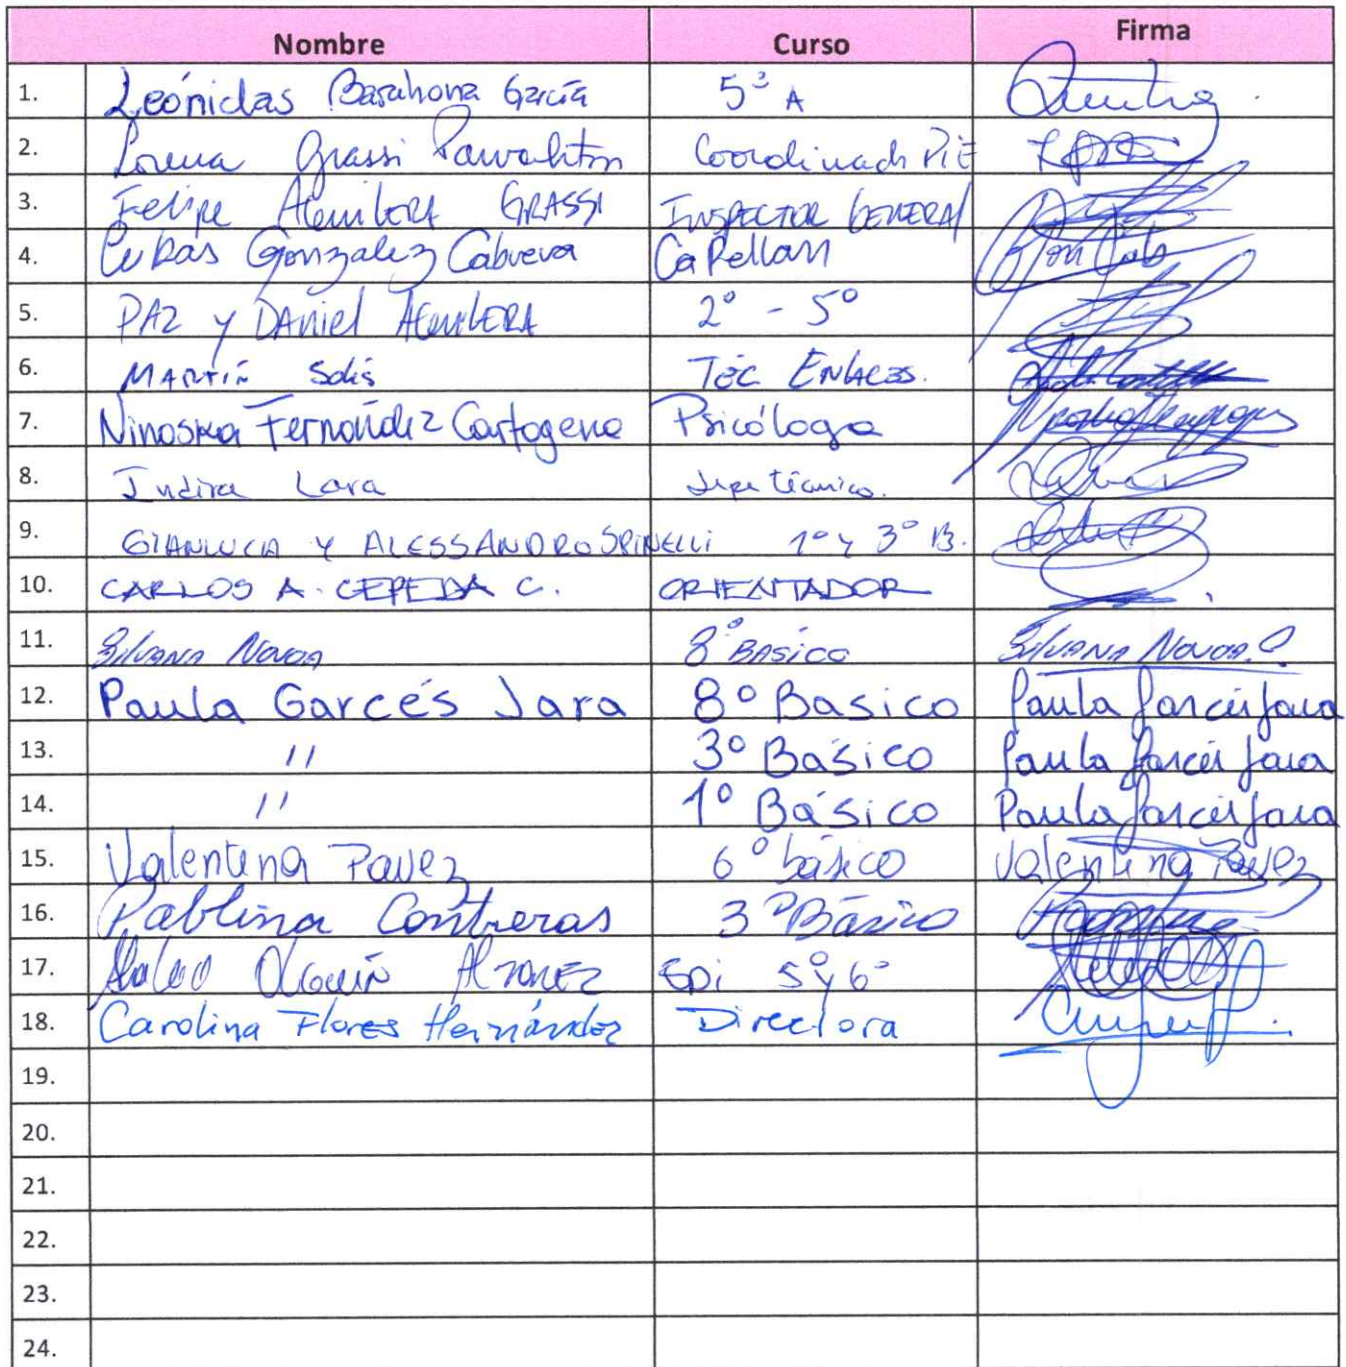 Nombre Curso Firma
1. Leónidas Barahona García 5° A
2. Lorena Grassi Coordinadora PiE
3. Felipe Aguilera GRASSI INSPECTOR GENERAL
4. Lukas Gonzalez Cabrera Capellan
5. PAZ y DAniel AguilERA 2° - 5°
6. MARTÍN Solis Tec Enlaces.
7. Ninoska Fernández Cartagena Psicóloga
8. Indira Lara Jefe técnico.
9. GIANLUCA Y ALESSANDRO SPINELLI 1° y 3° B.
10. CARLOS A. CEPEDA C. ORIENTADOR
11. Silvana Novoa 8° BASICO Silvana Novoa
12. Paula Garcés Jara 8° Basico Paula Garcés Jara
13. 11 3° Básico Paula Garcés Jara
14. 11 1° Básico Paula Garcés Jara
15. Valentina Pavez 6° básico Valentina Pavez
16. Pablina Contreras 3° Básico
17. Olguín EDi 5° y 6°
18. Carolina Flores Hernández Directora
19.
20.
21.
22.
23.
24.